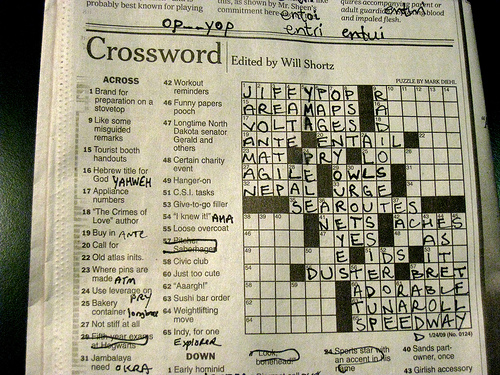 probably best known for playing
this, as shown by Mr. Sheen's
commitment here
quires accompanying parent or
adult guardian
blood
and impaled flesh.
op__yop
entri
entui
Crossword
Edited by Will Shortz
PUZZLE BY MARK DIEHL
ACROSS
1 Brand for
preparation on a
stovetop
9 Like some
misguided
remarks
15 Tourist booth
handouts
16 Hebrew title for
God YAHWEH
17 Appliance
numbers
18 "The Crimes of
Love" author
19 Buy in ANTE
20 Call for
22 Old atlas inits.
23 Where pins are
made ATM
24 Use leverage on
PRY
25 Bakery
container
27 Not stiff at all
29 Fifth year exams
at Hogwarts
31 Jambalaya
need OKRA
42 Workout
reminders
46 Funny papers
pooch
47 Longtime North
Dakota senator
Gerald and
others
48 Certain charity
event
49 Hanger-on
51 C.S.I. tasks
53 Give-to-go filler
54 "I knew it!" AHA
55 Loose overcoat
57 Pitcher
Saberhagen
58 Civic club
60 Just too cute
62 "Aaargh!"
63 Sushi bar order
64 Weightlifting
move
65 Indy, for one
Explorer
DOWN
1 Early hominid
JIFFYPOP R
AREAMAPS A
VOLTAGES D
ANTE ENTAIL
MAT PRY O
AGILE OWLS
NEPAL URGE
SEAROUTES
NETS ACHES
YES AS
E IDS T
DUSTER BRET
ADORABLE
TUNAROLL
SPEEDWAY
D
1/24/09 (No. 0124)
"Look,
bonehead!"
34 Sports star with
an accent in his
name
40 Sands part-
owner, once
43 Girlish accessory